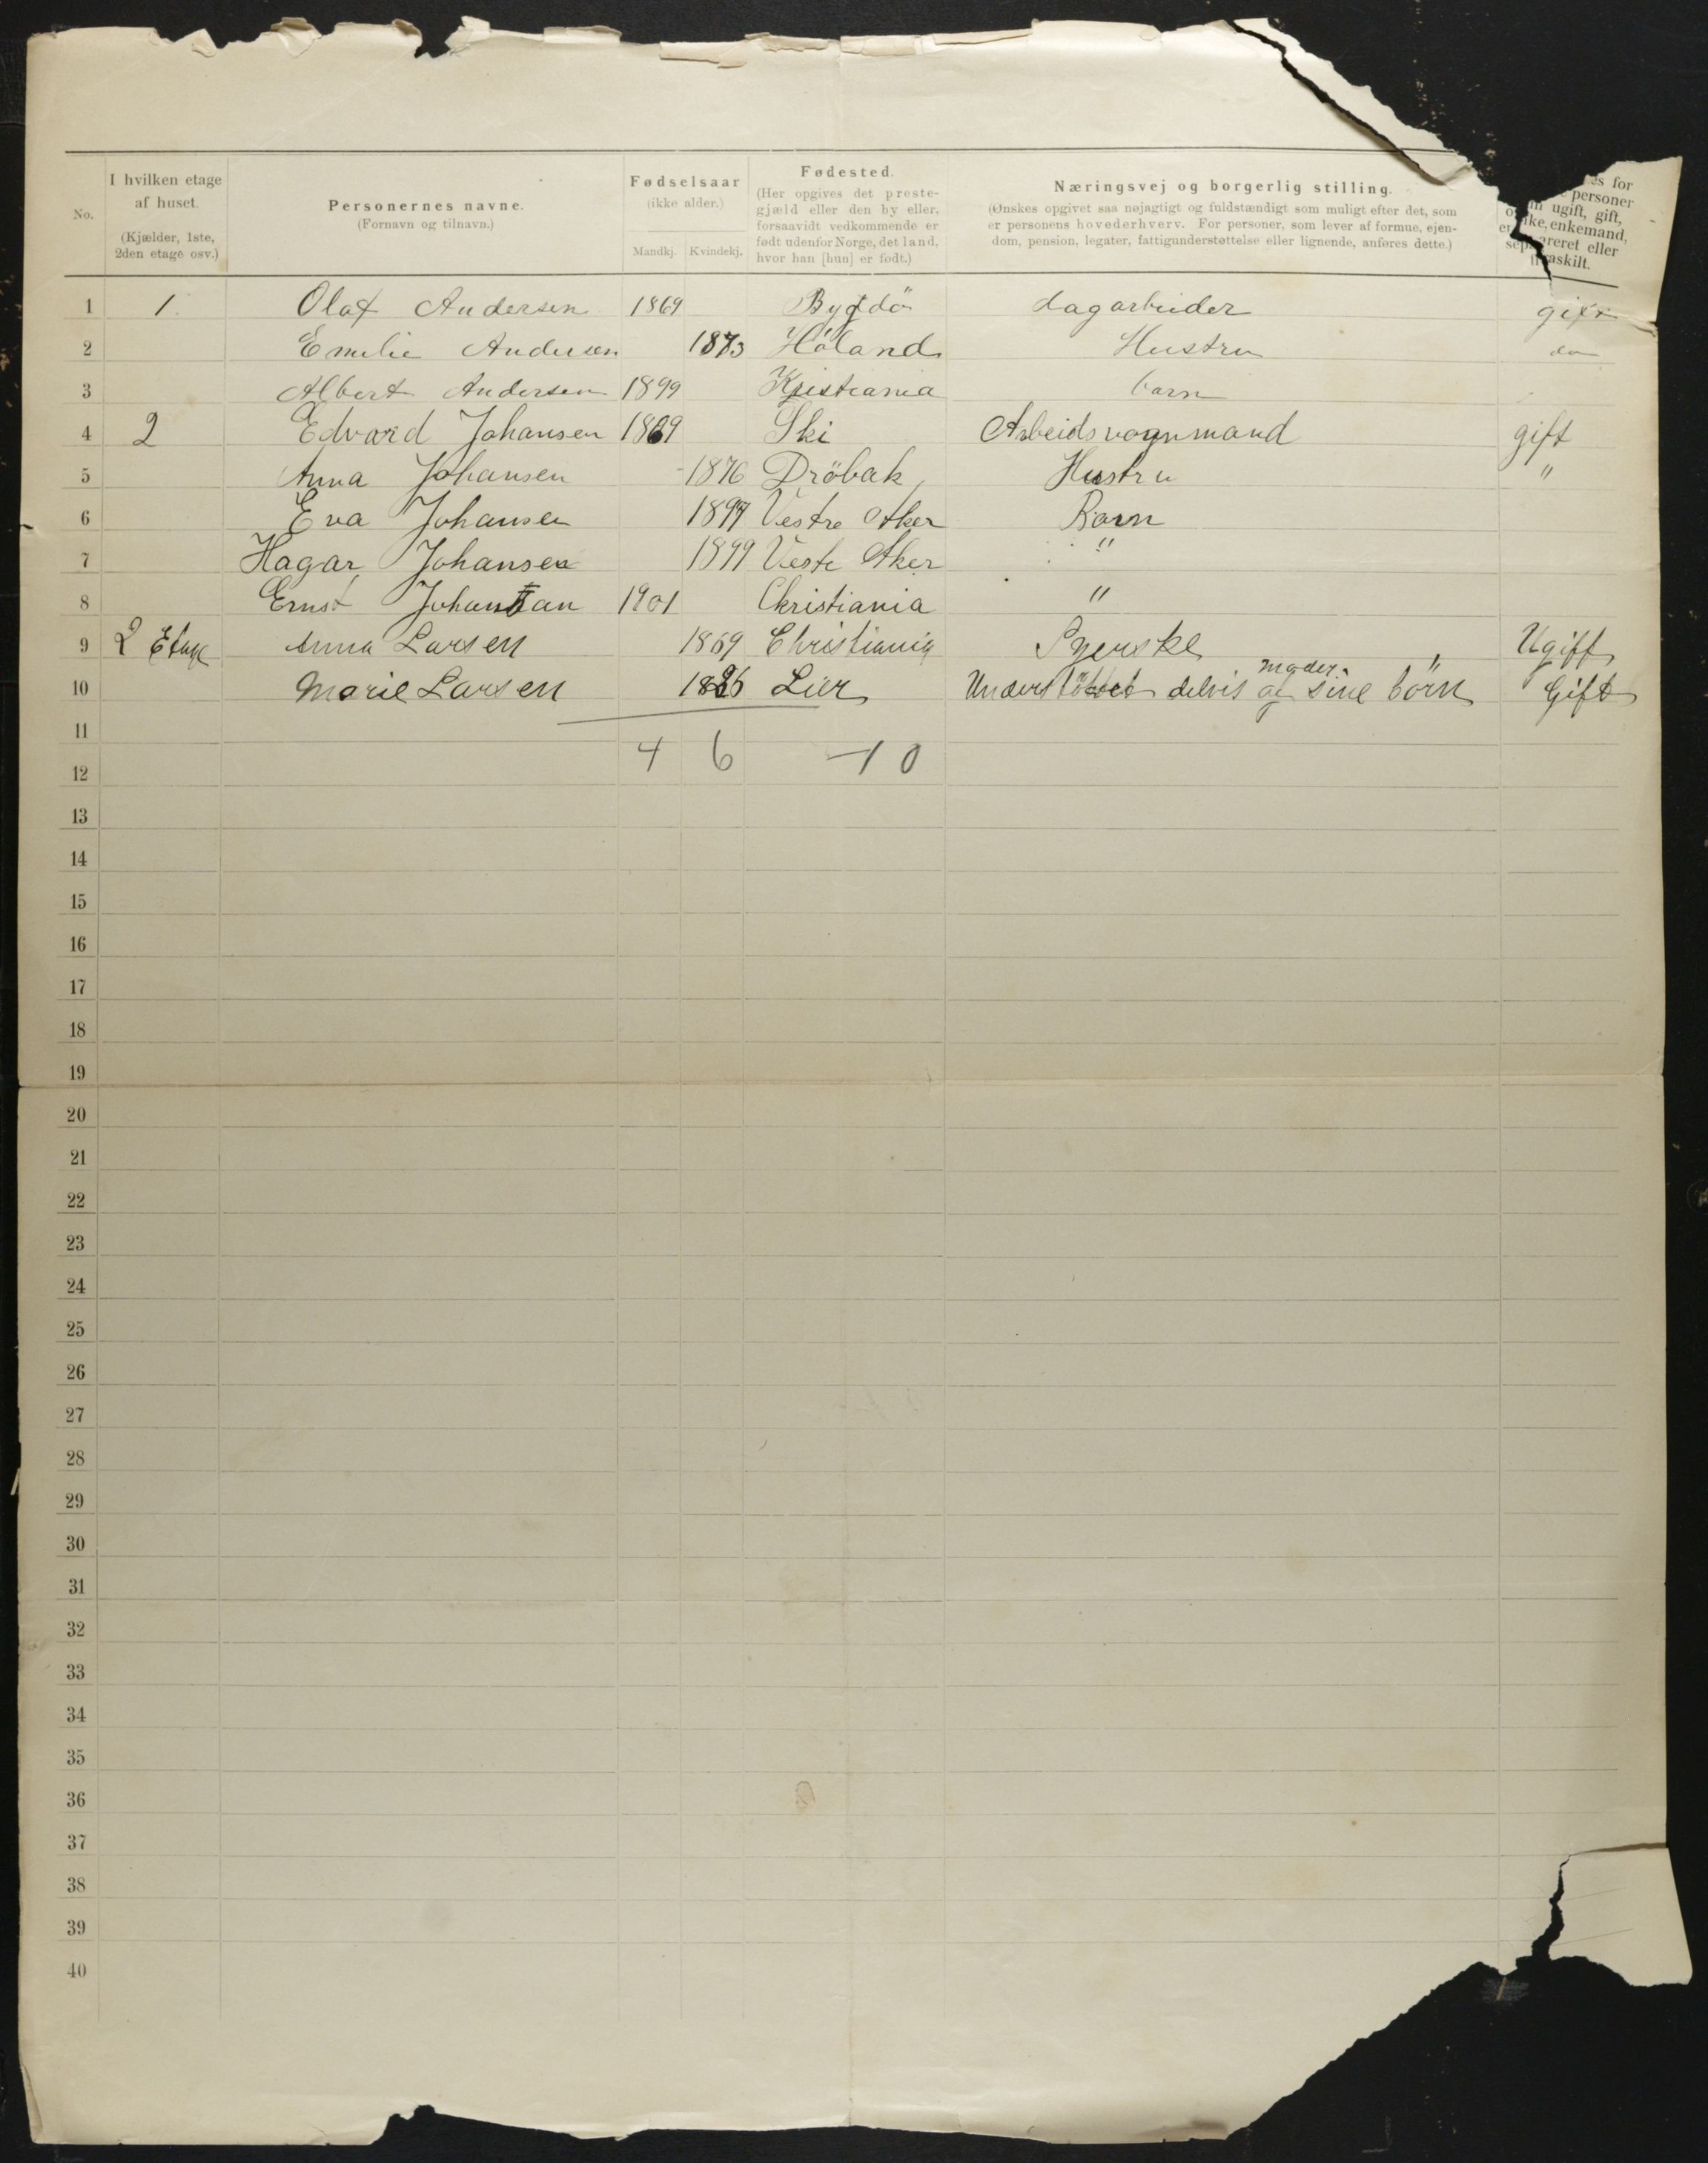 No.
I hvilken etage
af huset.
(Kjælder, 1ste,
2den etage osv.)
Personernes navne.
(Fornavn og tilnavn.)
Fødselsaar
(ikke alder.)
Mandkj. Kvindekj.
Fødested.
(Her opgives det preste-
gjæld eller den by eller,
forsaavidt vedkommende er
født udenfor Norge, det land,
hvor han [hun] er født.)
Næringsvej og borgerlig stilling.
(Ønskes opgivet saa nøjagtigt og fuldstændigt som muligt efter det, som
er personens hovederhverv. For personer, som lever af formue, ejen-
dom, pension, legater, fattigunderstøttelse eller lignende, anføres dette.)
for
personer
ugift, gift,
enkemand,
eller
1 1 Olaf Andersen 1869 Bygdö dagarbeider gift
2 Emilie Andersen 1873 Höland Hustru do
3 Albert Andersen 1899 Kristiania barn
4 2 Edvard Johansen 1869 Ski Arbeidsvognmand gift
5 Anna Johansen 1876 Dröbak Hustru "
6 Eva Johansen 1897 Vestre Aker Barn
7 Hagar Johansen 1899 Veste Aker "
8 Ernst Johansan 1901 Christiania "
9 2 Etage Anna Larsen 1869 Christiania Syerske Ugift
10 Marie Larsen Lier Understöttet delvis af sine börn Gift
moder.
11
4 6 10
12
13
14
15
16
17
18
19
20
21
22
23
24
25
26
27
28
29
30
31
32
33
34
35
36
37
38
39
40